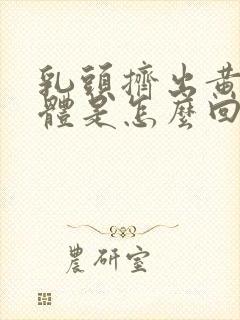 乳頭擠出黃
體是怎麼回
農研室